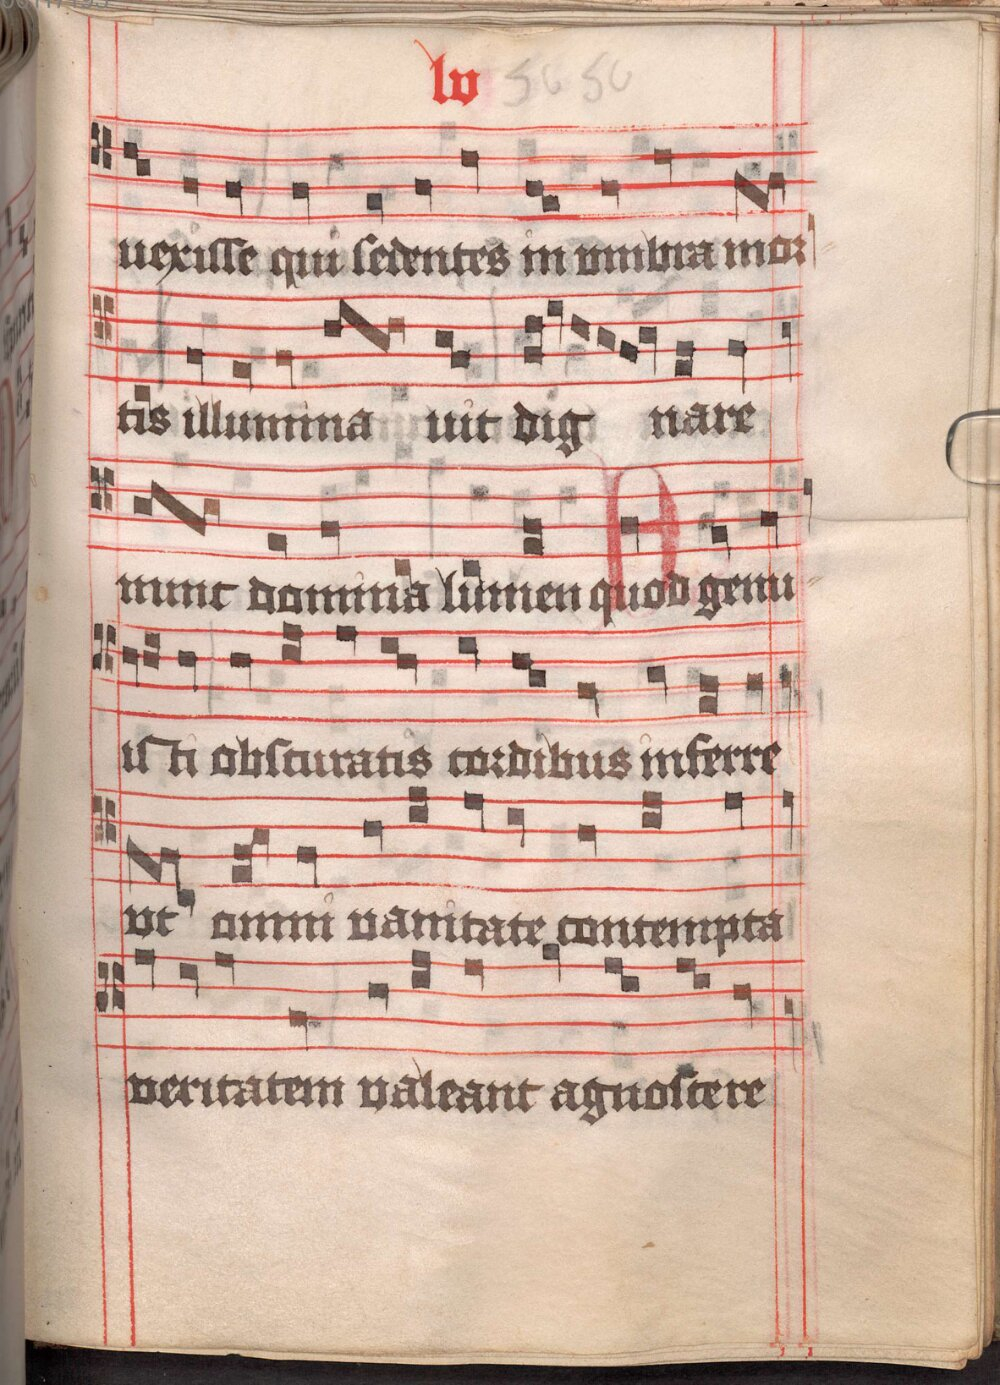 lv 56 56
uexisse qui sedentes in vmbra mor
tis illumina uit dig nare
nunc domina lumen quod genu
isti obscuratis cordibus inferre
vt omni vanitate contempta
veritatem valeant agnoscere